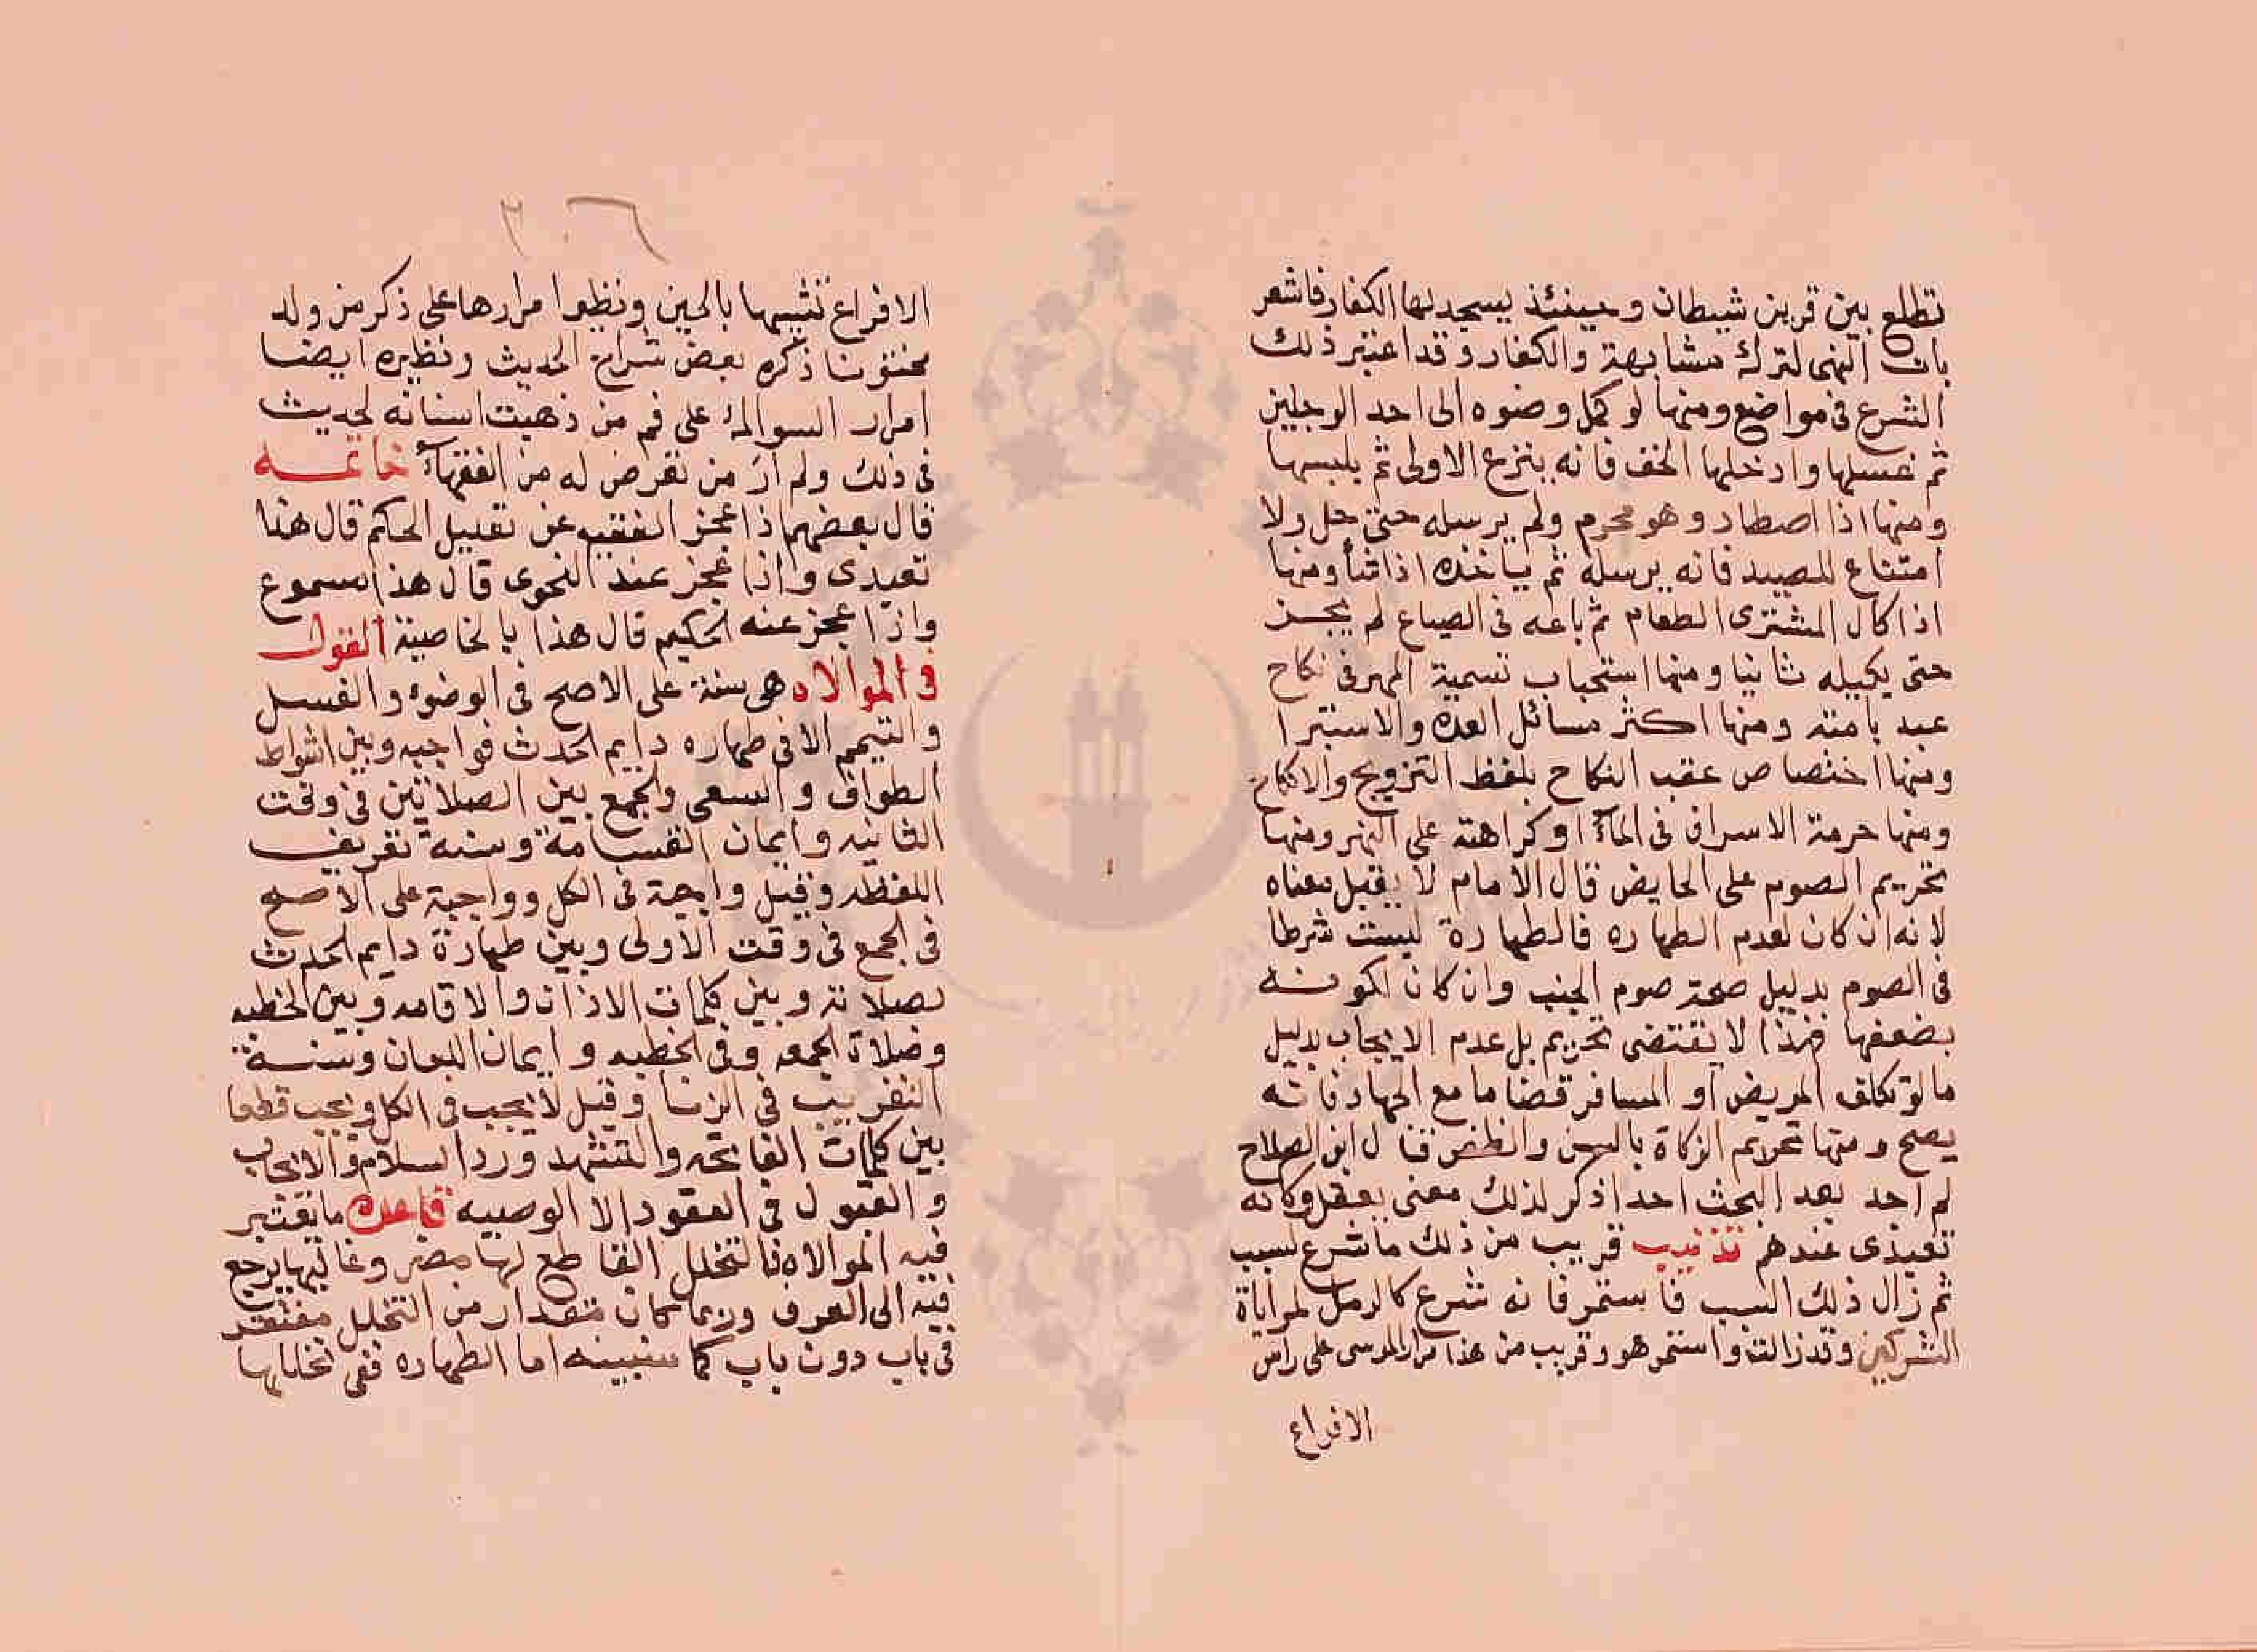 تطلع بين قرنى شيطان وحينئذ يسجد لها الكفار فاشعر
بان النهى لترك مشابهة والكفار وقد اعتبر ذلك
الشرع فى مواضع ومنها لو كمل وضوه الى احد الوجلين
ثم غسلها وادخلها الخف فانه ينزع الاولى ثم يلبسها
ومنها اذا اصطاد وهو محرم ولم يرسله حتى حل ولا
امتناع للصيد فانه يرسله ثم ياخذه اذا شأ ومنها
اذا كال المشترى الطعام ثم باعه فى الصاع لم يجز
حتى يكيله ثانيا ومنها استحباب تسمية المهر فى نكاح
عبد بامته ومنها اكثر مسائل العده والاستبرا
ومنها اختصاص عقد النكاح بلفظ التزويج والانكاح
ومنها حرمة الاسراف فى المآء او كراهته على النهر ومنها
تحريم الصوم على الحايض قال الامام لا يعقل معناه
لانه ان كان لعدم الطهاره فالطهارة ليست شرطا
فى الصوم بدليل صحة صوم الجنب وان كان لكونه
يضعفها فهذا لا يقتضى تحريم بل عدم الايجاب بدليل
ما لو تكلف المريض او المسافر قضاما مع الجهاد فانه
يصح ومنها تحريم الزكاة بالسن والظفر قال ابن الصلاح
لم احد بعد البحث احدا ذكر لذلك معنى يعقل وكانه
تعبدى عندهم تذنيب قريب من ذلك ما شرع لسبب
ثم زال ذلك السبب فاستمر فانه شرع كالرمل لمراياة
المشركين وقد زالت واستمر هو وقريب من هذا مرار الموسى على راس
الاقراع
٢٠٦
الاقراع تشبيها بالحين ونظيوا مرارها على ذكر من ولد
مختونا ذكره بعض شراح الحديث ونظيره ايضا
امرار السواك على فم من ذهبت اسنانه لحديث
فى ذلك ولم ار من تعرض له من الفقهآء خاتمه
قال بعضهم اذا عجز الفقيه عن تعليل الحكم قال هذا
تعبدى واذا عجز عنه النحوى قال هذا مسموع
واذا عجز عنه الحكيم قال هذا بالخاصية القول
فى الموالاه هى سنة على الاصح فى الوضوء والغسل
والتيمم الا فى طهاره دايم الحدث فواجبه وبين اشواط
الطواف والسعى والجمع بين الصلاتين فى وقت
الثانيه وايمان القسامة وسنة تعريف
اللقطه وقيل واجبة فى الكل وواجبة على الاصح
فى الجمع فى وقت الاولى وبين طهارة دايم الحدث
لصلاته وبين كلمات الاذان والاقامه وبين الخطبه
وصلاة الجمعه وفى الخطبه وايمان اللعان وسنة
التغريب فى الزنا وقيل لا يجب فى الكل ويجب قطعا
بين كلمات الفاتحه والتشهد ورد السلام والايجاب
والقبول فى العقود الا الوصيه قاعده ما يعتبر
فيه الموالاه فالتخلل القاطع لها مضر وغالبها يرجع
فيه الى العرف وربما كان مقدار من التخلل مغتفر
فى باب دون باب كما سنبينه اما الطهاره ففى تخللها